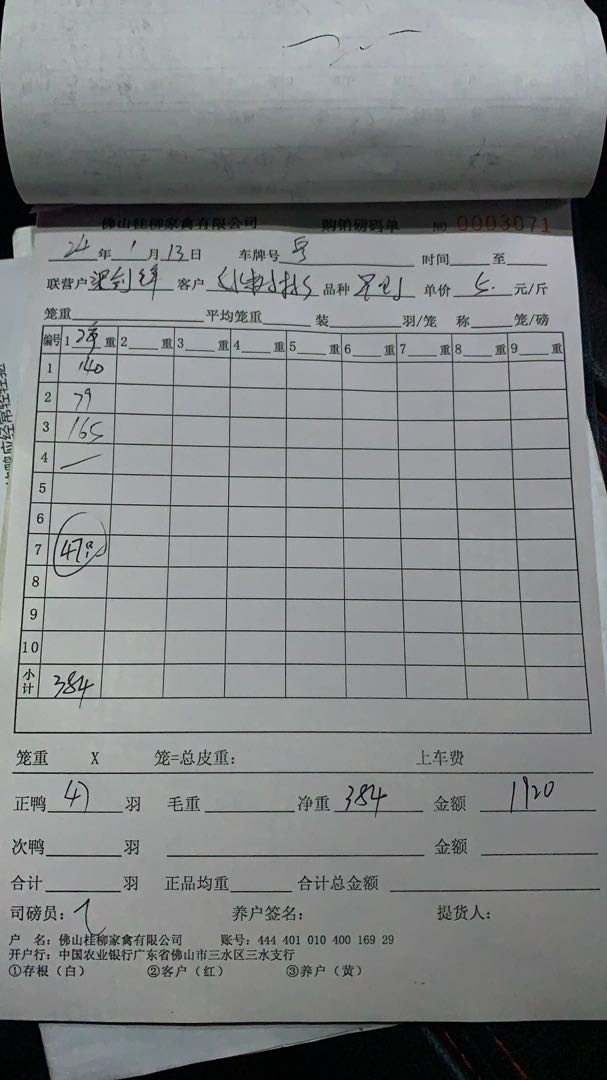 佛山桂柳家禽有限公司 购销磅码单 NO 0003071
24年1月13日 车牌号 时间 至
联营户 客户 品种 单价 5. 元/斤
笼重 平均笼重 装 羽/笼 称 笼/磅
编号 1 重 2 重 3 重 4 重 5 重 6 重 7 重 8 重 9 重
1 140
2 79
3 165
4 —
5
6
7 47只
8
9
10
小计 384
笼重 X 笼=总皮重: 上车费
正鸭 47 羽 毛重 净重 384 金额 1920
次鸭 羽 金额
合计 羽 正品均重 合计总金额
司磅员: 养户签名: 提货人:
户 名: 佛山桂柳家禽有限公司 账号: 444 401 010 400 169 29
开户行: 中国农业银行广东省佛山市三水区三水支行
①存根(白) ②客户(红) ③养户(黄)